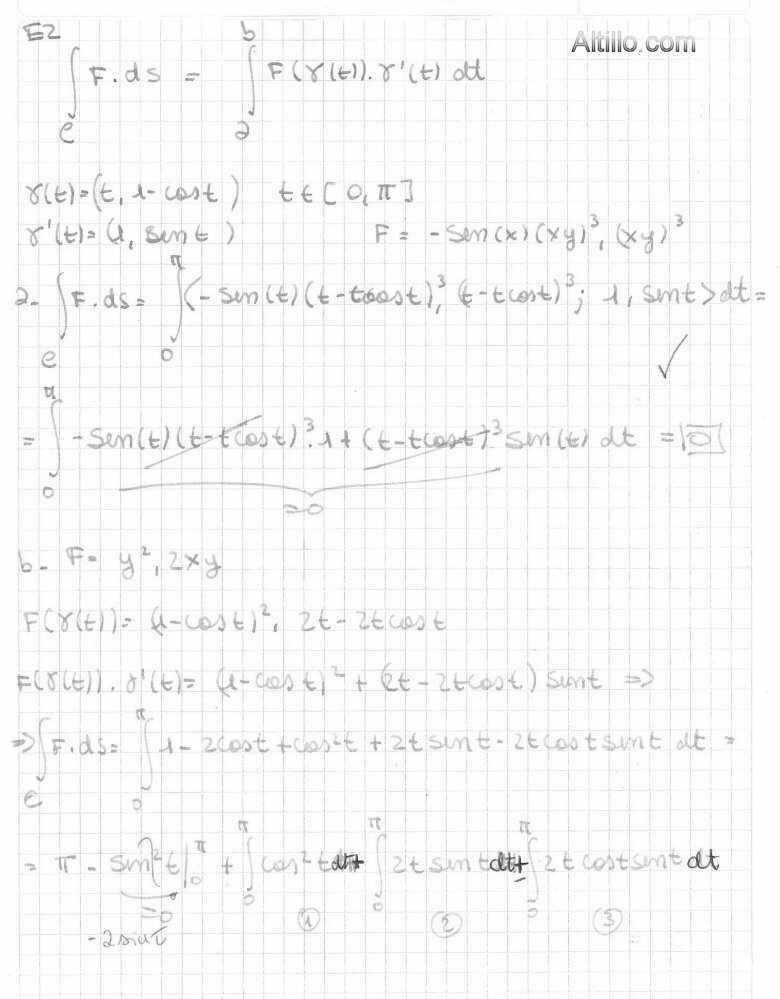 E2
Altillo.com
∫_e F. ds = ∫_a^b F(γ(t)). γ'(t) dt
γ(t)=(t, 1-cost) t ∈ [0, π]
γ'(t)=(1, sent) F = -sen(x)(xy)³, (xy)³
a- ∫_e F. ds = ∫_0^π (-sen(t)(t-tcost)³, (t-tcost)³; 1, sent> dt =
✓
= ∫_0^π -sen(t)(t-tcost)³.1+(t-tcost)³sen(t) dt = |0|
=0
b- F= y², 2xy
F(γ(t))= (1-cost)², 2t-2tcost
F(γ(t)). γ'(t)= (1-cost)² + (2t-2tcost) sint ⇒
⇒ ∫_e F. ds= ∫_0^π 1-2cost+cos²t+2tsint-2tcostsint dt =
= π - sen²t|_0^π + ∫_0^π cos²tdt+ ∫_0^π 2tsintdt+ ∫_0^π 2tcostsint dt
=0 ① ② ③
-2sinπ